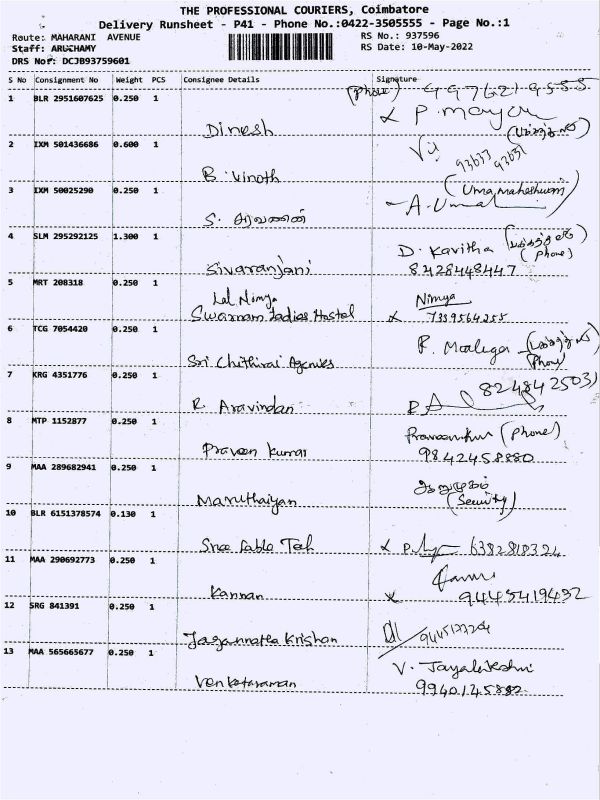 THE PROFESSIONAL COURIERS, Coimbatore
Delivery Runsheet - P41 - Phone No.:0422-3505555 - Page No.:1
Route: MAHARANI AVENUE
RS No.: 937596
Staff: ARUCHAMY
RS Date: 10-May-2022
DRS No#: DCJB93759601
S No Consignment No Weight PCS Consignee Details Signature
1 BLR 2951607625 0.250 1 (Phone) 9976219555
Dinesh
2 IXM 501436686 0.600 1
B. Vinoth
3 IXM 50025290 0.250 1 (Uma maheshwari)
S. சரவணன் A. Uma
4 SLM 295292125 1.300 1 D. Kavitha (Phone)
Sivaranjani 8428448447
5 MRT 208318 0.250 1 Nimya
Swarnam Ladies Hostel 7339564255
6 TCG 7054420 0.250 1 (Phone)
Sri Chithirai Agencies
7 KRG 4351776 0.250 1 8248425031
R. Aravindan
8 MTP 1152877 0.250 1 (Phone)
Praveen kumar 9842458880
9 MAA 289682941 0.250 1 ஆறுமுகம்
Maruthaiyan (Security)
10 BLR 6151378574 0.130 1
Sree Lable Teh 6382818324
11 MAA 290692773 0.250 1
Kannan 9445419432
12 SRG 841391 0.250 1
Jagannatha Krishan
13 MAA 565665677 0.250 1 V. Jayalakshmi
Venkataraman 9940145882